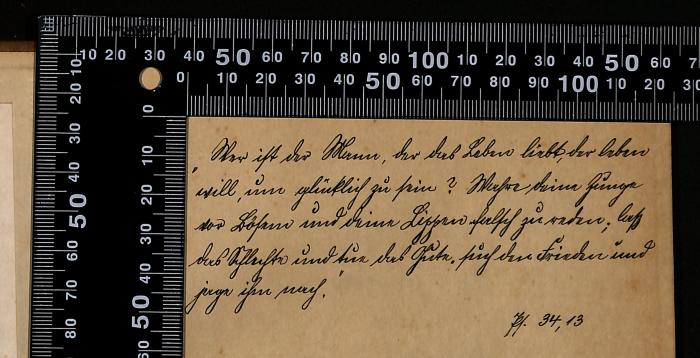 10 20 30 40 50 60 70 80 90 100 10 20 30 40 50 60 7
0 10 20 30 40 50 60 70 80 90 100 10 20 30
10 20 30 40 50 60 70 80
0 10 20 30 40 50 60
„Wer ist der Mann, der das Leben liebt, der leben
will, um glücklich zu sein? Wahre deine Zunge
vor Bösem und deine Lippen falsch zu reden; laß
das Schlechte und tue das Gute. such den Frieden und
jage ihm nach."
Ps. 34,13